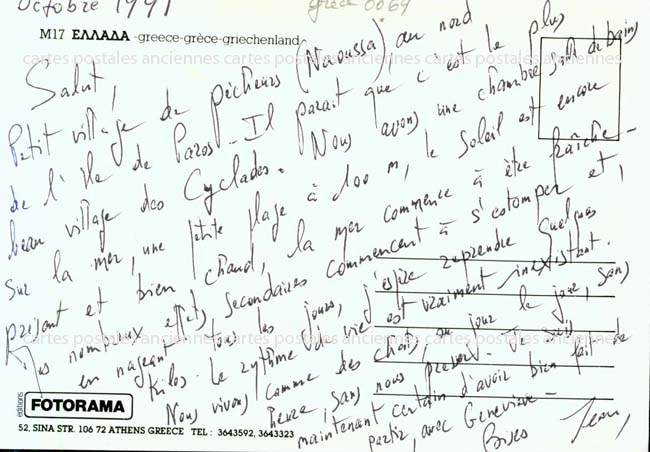 Octobre 1991
grèce 0064
M17 ΕΛΛΑΔΑ -greece-grèce-griechenland
cartes postales anciennes cartes postales anciennes cartes postales anciennes
Salut,
Petit village de pêcheurs (Naoussa) au nord
de l'île de Paros - Il parait que c'est le plus
beau village des Cyclades. Nous avons une chambre salle de bains
sur la mer, une petite plage à 100 m, le soleil est encore
présent et bien chaud, la mer commence à être fraîche -
Mes nombreux effets secondaires commencent à s'estomper et,
en nageant tous les jours, j'espère reprendre quelques
Kilos. Le rythme de vie est vraiment inexistant.
Nous vivons comme des chats, au jour le jour, sans
heure, sans nous presser - Je suis
maintenant certain d'avoir bien fait de
partir, avec Geneviève -
Bises Jean,
cartes postales anciennes cartes postales anciennes cartes postales anciennes
editions
FOTORAMA
52, SINA STR. 106 72 ATHENS GREECE TEL : 3643592, 3643323